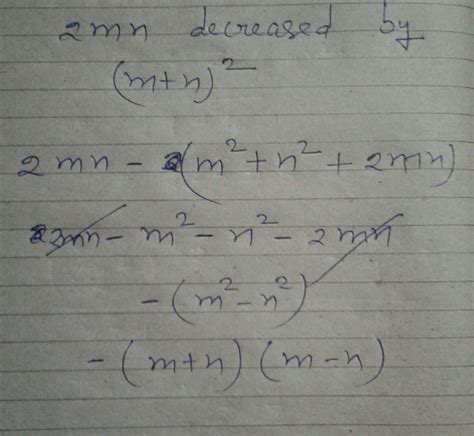 2mn decreased by
(m+n)²
2mn - (m²+n²+2mn)
2mn - m² - n² - 2mn
-(m²-n²)
-(m+n)(m-n)